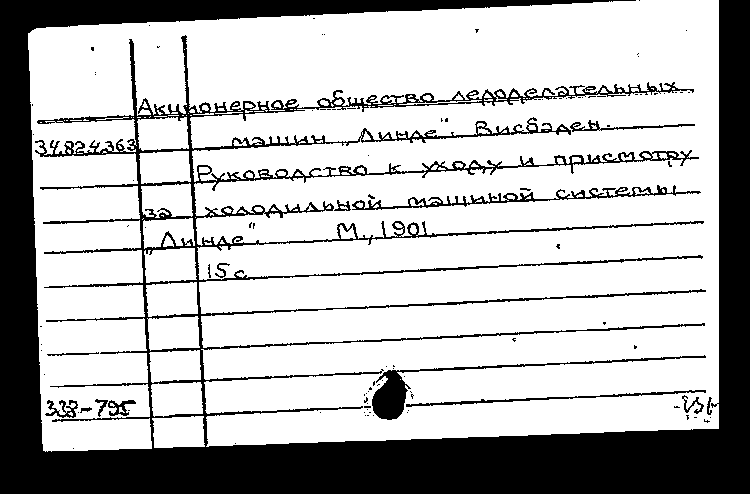 Акционерное общество ледоделательных
34.82.4.363 машин „Линде". Висбаден.
Руководство к уходу и присмотру
за холодильной машиной системы
„Линде". М., 1901.
15 с.
338-795